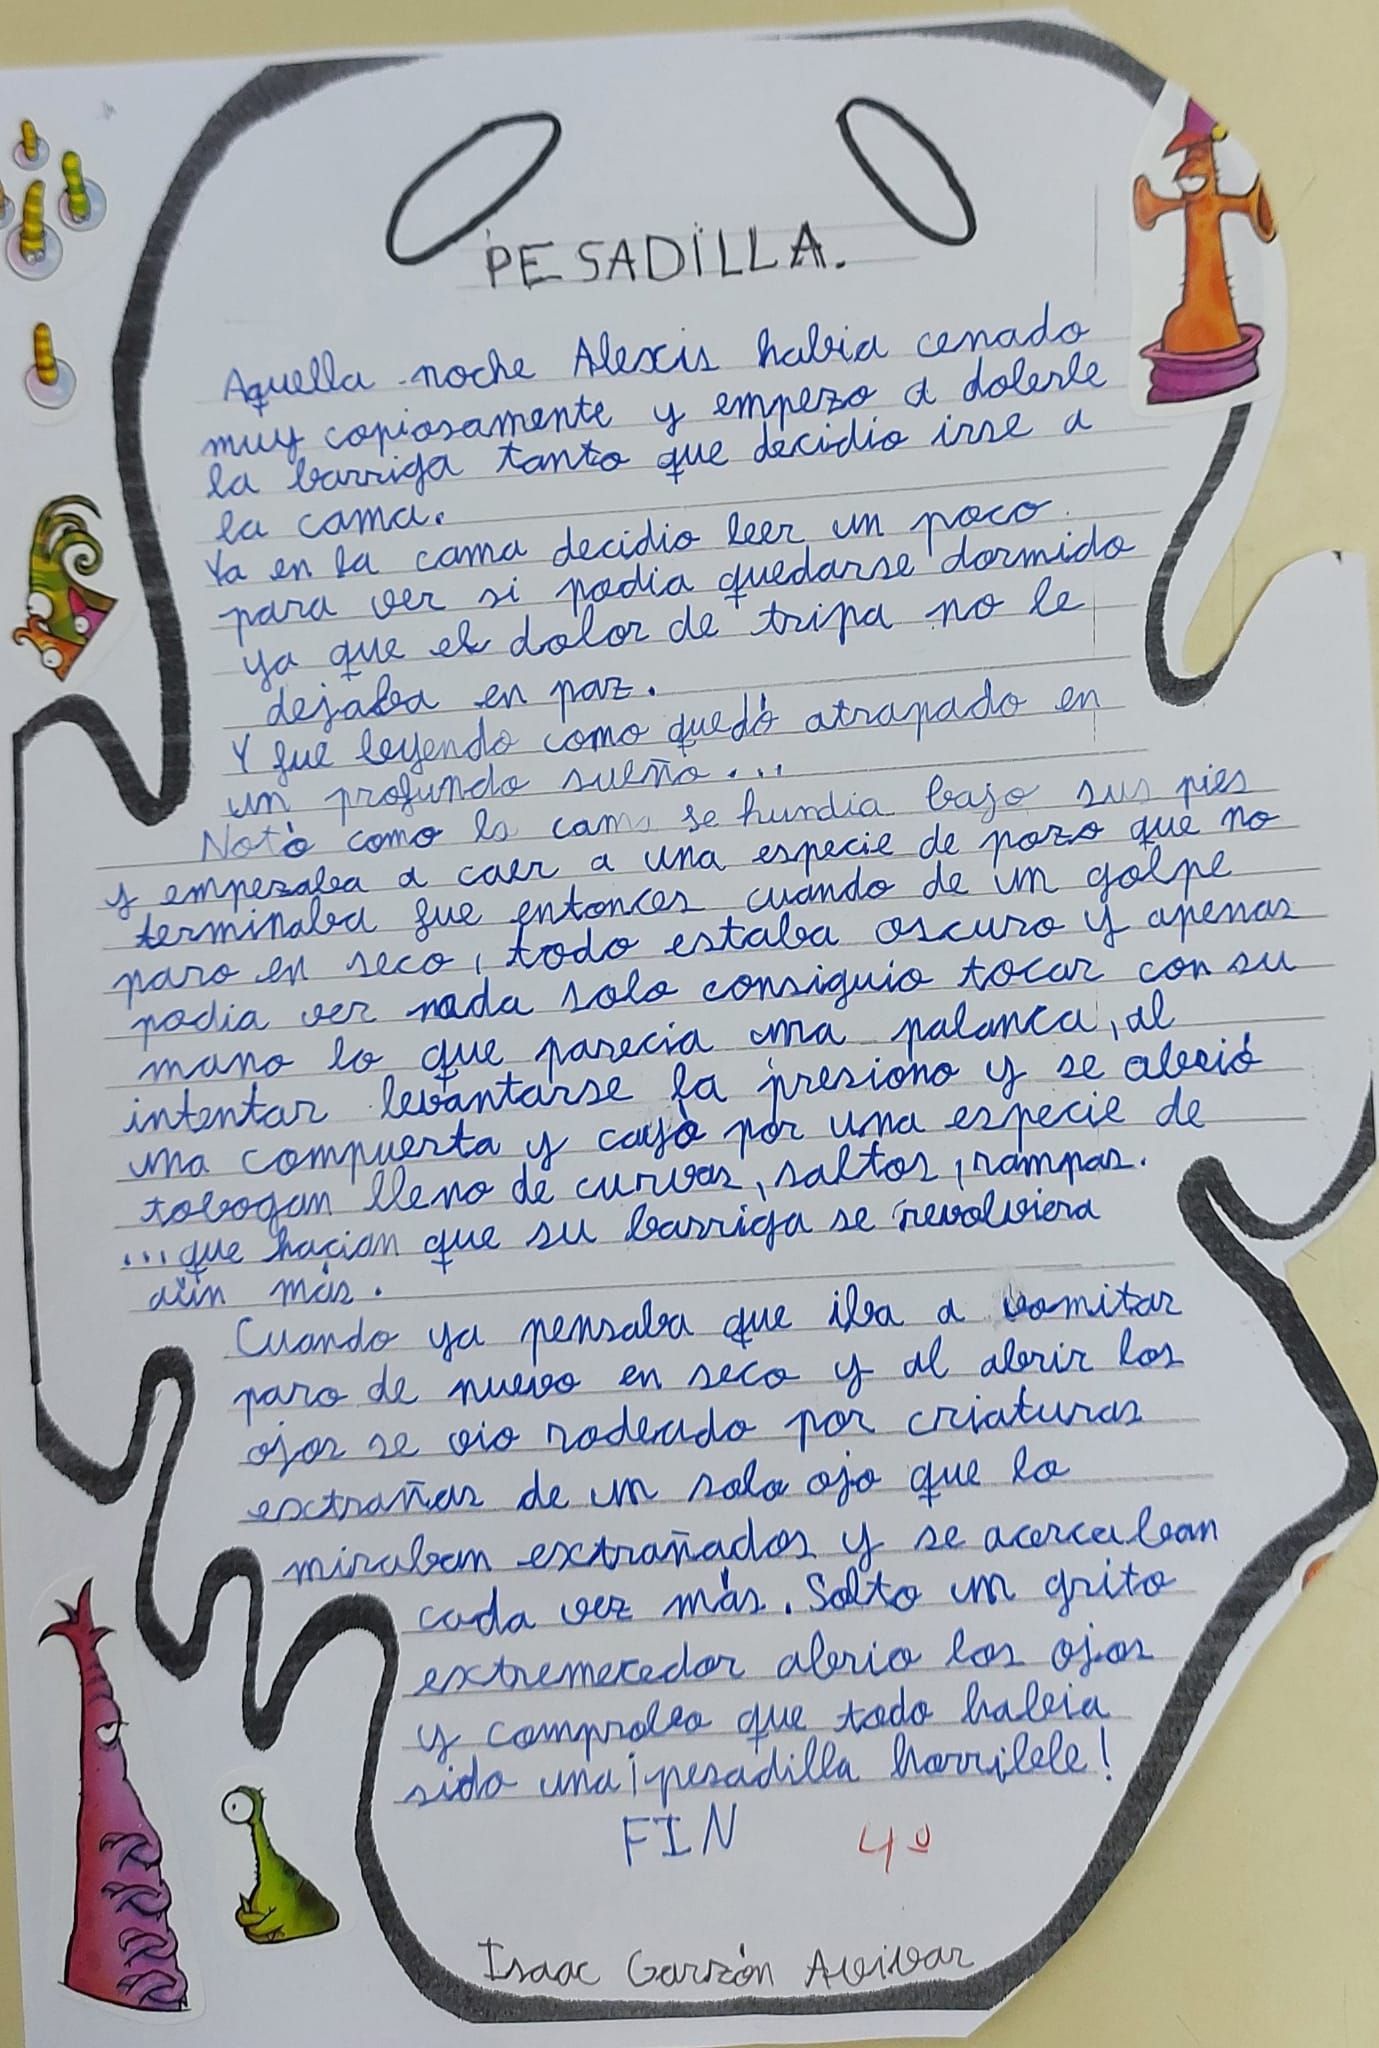 PESADILLA.
Aquella noche Alexis habia cenado
muy copiosamente y empezo a dolerle
la barriga tanto que decidio irse a
la cama.
Ya en la cama decidio leer un poco
para ver si podia quedarse dormido
ya que el dolor de tripa no le
dejaba en paz.
Y fue leyendo como quedó atrapado en
un profundo sueño...
Notó como la cama se hundia bajo sus pies
y empezaba a caer a una especie de pozo que no
terminaba fue entonces cuando de un golpe
paro en seco, todo estaba oscuro y apenas
podia ver nada solo consiguio tocar con su
mano lo que parecia una palanca, al
intentar levantarse la presiono y se abrió
una compuerta y cayó por una especie de
tobogan lleno de curvas, saltos, rampas.
...que hacian que su barriga se revolviera
aún más.
Cuando ya pensaba que iba a vomitar
paro de nuevo en seco y al abrir los
ojos se vio rodeado por criaturas
extrañas de un solo ojo que lo
miraban extrañados y se acercaban
cada vez más. Solto un grito
extremecedor abrio los ojos
y comprobo que todo habia
sido una ¡pesadilla horrible!
FIN 4º
Isaac Garzón